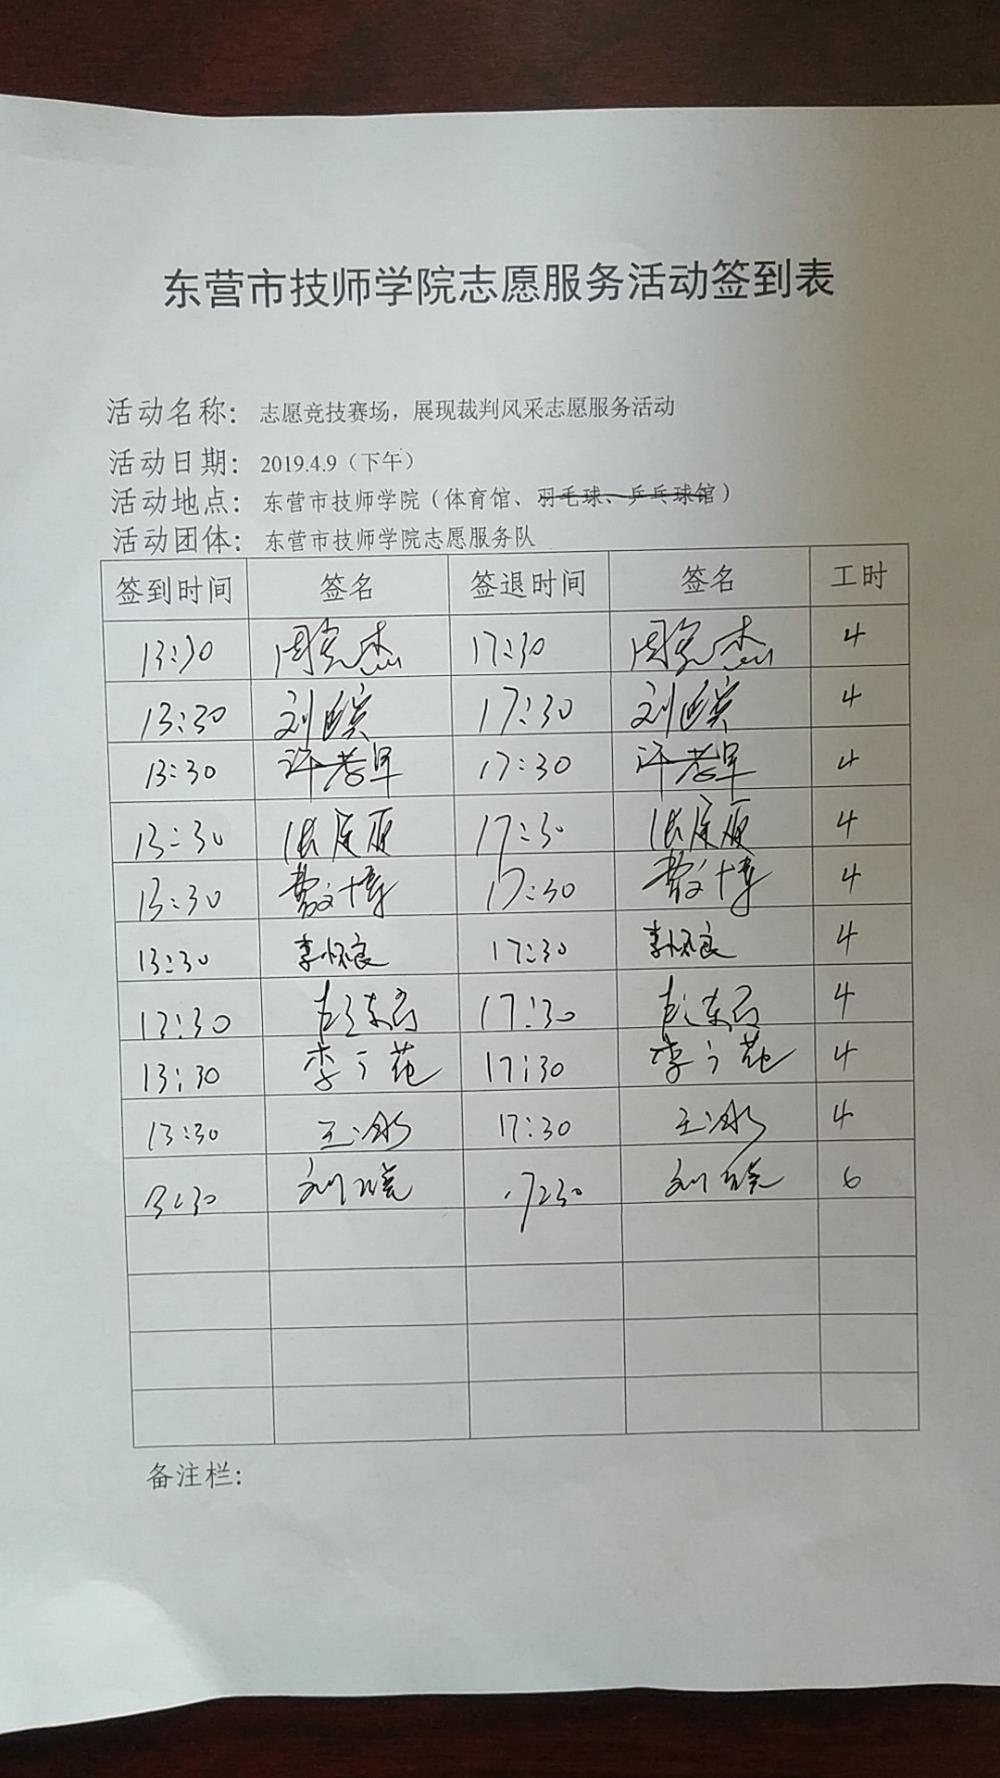 东营市技师学院志愿服务活动签到表
活动名称：志愿竞技赛场，展现裁判风采志愿服务活动
活动日期：2019.4.9（下午）
活动地点：东营市技师学院（体育馆、羽毛球、乒乓球馆）
活动团体：东营市技师学院志愿服务队
签到时间 签名 签退时间 签名 工时
13:30 17:30 4
13:30 刘 17:30 刘 4
13:30 许孝军 17:30 许孝军 4
13:30 张 17:30 张 4
13:30 17:30 4
13:30 李怀良 17:30 李怀良 4
13:30 彭东 17:30 彭东 4
13:30 李 花 17:30 李 花 4
13:30 王冰 17:30 王冰 4
13:30 刘晓 17:30 刘晓 6
备注栏：